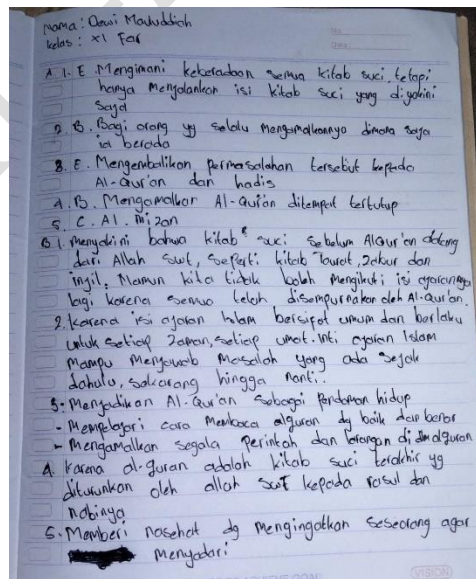 Nama : Dewi Mauluddiah
kelas : XI Far
No :
Date :
A. 1. E. Mengimani keberadaan semua kitab suci, tetapi
hanya Menjalankan isi kitab suci yang diyakini
saja
2. B. Bagi orang yg selalu Mengamalkannya dimana saja
ia berada
3. E. Mengembalikan permasalahan tersebut kepada
Al-Qur'an dan hadis
4. B. Mengamalkan Al-Qur'an ditempat tertutup
5. C. Al. Mizan
B 1. Menyakini bahwa kitab² suci sebelum AlQur'an datang
dari Allah swt, seperti kitab Taurat, Zabur dan
injil, Namun kita tidak boleh Mengikuti isi ajarannya
lagi karena semua telah disempurnakan oleh Al-Qur'an.
2. karena isi ajaran Islam bersifat umum dan berlaku
untuk setiap zaman, setiap umat. inti ajaran Islam
Mampu Menjawab Masalah yang ada sejak
dahulu, sakarang hingga nanti.
3. - Menjadikan Al-Qur'an sebagai Pendoman hidup
- Mempelajari cara Membaca alquran dg baik dan benar
- Mengamalkan segala perintah dan larangan di alquran
4. karena al-quran adalah kitab suci terakhir yg
diturunkan oleh allah swt kepada rasul dan
nabinya
5. Memberi nasehat dg mengingatkan seseorang agar
Menyadari
VISION